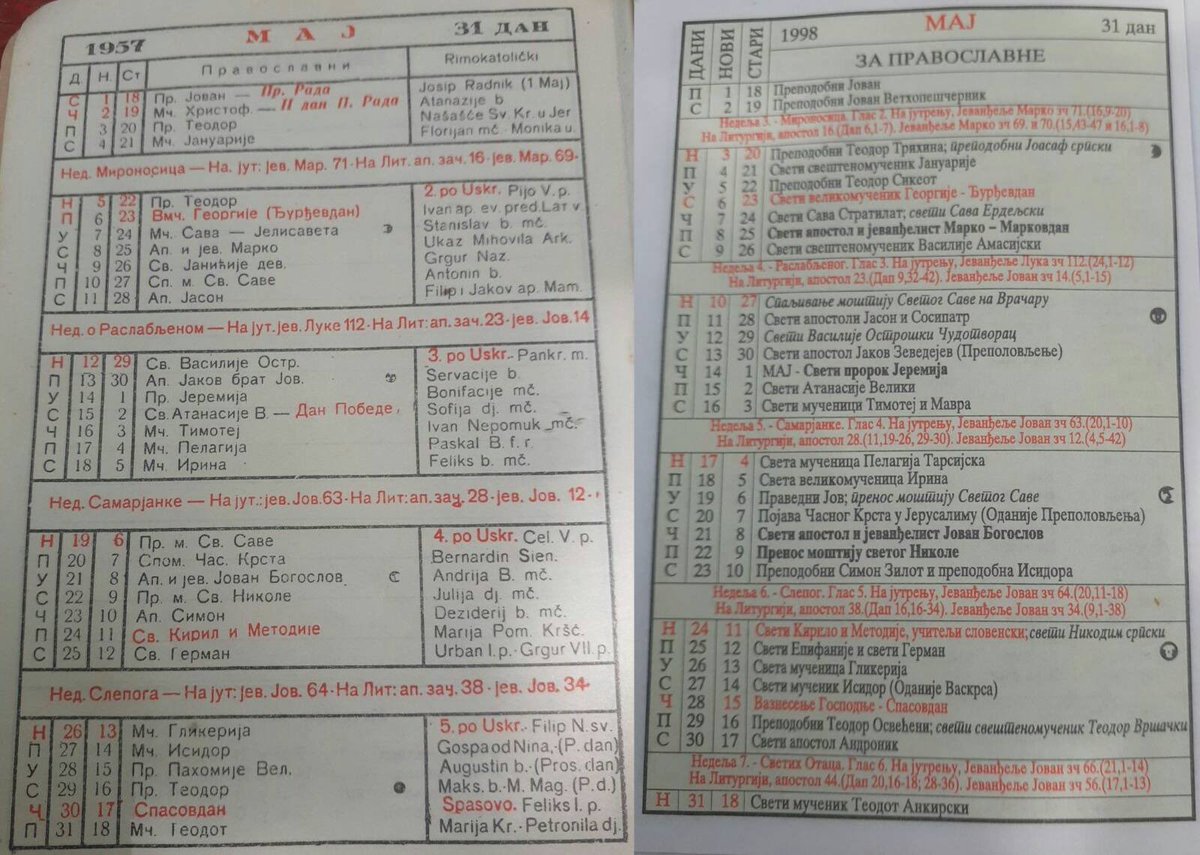 1957 МАЈ 31 ДАН
Д Н. Ст Православни Rimokatolički
С 1 18 Пр. Јован — Пр. Рада Josip Radnik (1 Maj)
Ч 2 19 Мч. Христоф — II дан П. Рада Atanazije b
П 3 20 Пр. Теодор Našašće Sv. Kr. u Jer
С 4 21 Мч. Јануарије Florijan mč. Monika u.
Нед. Мироносица — На јут: јев. Мар. 71 - На Лит. ап. зач. 16 - јев. Мар. 69
Н 5 22 Пр. Теодор 2. po Uskr. Pijo V. p.
П 6 23 Вмч. Георгије (Ђурђевдан) Ivan ap. ev. pred. Lat v.
У 7 24 Мч. Сава — Јелисавета Stanislav b. mč.
С 8 25 Ап. и јев. Марко Ukaz Mihovila Ark.
Ч 9 26 Св. Јанићије дев. Grgur Naz.
П 10 27 Сп. м. Св. Саве Antonin b.
С 11 28 Ап. Јасон Filip i Jakov ap. Mam.
Нед. о Раслабљеном — На јут. јев. Луке 112 - На Лит: ап. зач. 23 - јев. Јов. 14
Н 12 29 Св. Василије Остр. 3. po Uskr. - Pankr. m.
П 13 30 Ап. Јаков брат Јов. Servacije b.
У 14 1 Пр. Јеремија Bonifacije mč.
С 15 2 Св. Атанасије В. — Дан Победе, Sofija dj. mč.
Ч 16 3 Мч. Тимотеј Ivan Nepomuk mč.
П 17 4 Мч. Пелагија Paskal B. f. r.
С 18 5 Мч. Ирина Feliks b. mč.
Нед. Самарјанке — На јут.: јев. Јов. 63 - На Лит: ап. зач. 28 - јев. Јов. 12
Н 19 6 Пр. м. Св. Саве 4. po Uskr. Cel. V. p.
П 20 7 Спом. Час. Крста Bernardin Sien.
У 21 8 Ап. и јев. Јован Богослов Andrija B. mč.
С 22 9 Пр. м. Св. Николе Julija dj. mč.
Ч 23 10 Ап. Симон Deziderij b. mč.
П 24 11 Св. Кирил и Методије Marija Pom. Kršć.
С 25 12 Св. Герман Urban I. p. - Grgur VII. p.
Нед. Слепога — На јут: јев. Јов. 64 - На Лит: ап. зач. 38 - јев. Јов. 34
Н 26 13 Мч. Гликерија 5. po Uskr. - Filip N. sv.
П 27 14 Мч. Исидор Gospa od Nina, - (P. dan)
У 28 15 Пр. Пахомије Вел. Augustin b. - (Pros. dan)
С 29 16 Пр. Теодор Maks. b. - M. Mag. (P. d.)
Ч 30 17 Спасовдан Spasovo. Feliks I. p.
П 31 18 Мч. Теодот Marija Kr. - Petronila dj.
ДАНИ НОВИ СТАРИ 1998 МАЈ 31 дан
ЗА ПРАВОСЛАВНЕ
П 1 18 Преподобни Јован
С 2 19 Преподобни Јован Ветхопешчерник
Недеља 3. - Мироносица. Глас 2. На јутрењу, Јеванђеље Марко зч 71.(16,9-20)
На Литургији, апостол 16.(Дап 6,1-7). Јеванђеље Марко зч 69. и 70.(15,43-47 и 16,1-8)
Н 3 20 Преподобни Теодор Трихина; преподобни Јоасаф српски
П 4 21 Свети свештеномученик Јануарије
У 5 22 Преподобни Теодор Сикеот
С 6 23 Свети великомученик Георгије - Ђурђевдан
Ч 7 24 Свети Сава Стратилат; свети Сава Ердељски
П 8 25 Свети апостол и јеванђелист Марко - Марковдан
С 9 26 Свети свештеномученик Василије Амасијски
Недеља 4. - Раслабљеног. Глас 3. На јутрењу, Јеванђеље Лука зч 112.(24,1-12)
На Литургији, апостол 23.(Дап 9,32-42). Јеванђеље Јован зч 14.(5,1-15)
Н 10 27 Спаљивање моштију Светог Саве на Врачару
П 11 28 Свети апостоли Јасон и Сосипатр
У 12 29 Свети Василије Острошки Чудотворац
С 13 30 Свети апостол Јаков Зеведејев (Преполовљење)
Ч 14 1 МАЈ - Свети пророк Јеремија
П 15 2 Свети Атанасије Велики
С 16 3 Свети мученици Тимотеј и Мавра
Недеља 5. - Самарјанке. Глас 4. На јутрењу, Јеванђеље Јован зч 63.(20,1-10)
На Литургији, апостол 28.(11,19-26, 29-30). Јеванђеље Јован зч 12.(4,5-42)
Н 17 4 Света мученица Пелагија Тарсијска
П 18 5 Света великомученица Ирина
У 19 6 Праведни Јов; пренос моштију Светог Саве
С 20 7 Појава Часног Крста у Јерусалиму (Оданије Преполовљења)
Ч 21 8 Свети апостол и јеванђелист Јован Богослов
П 22 9 Пренос моштију светог Николе
С 23 10 Преподобни Симон Зилот и преподобна Исидора
Недеља 6. - Слепог. Глас 5. На јутрењу, Јеванђеље Јован зч 64.(20,11-18)
На Литургији, апостол 38.(Дап 16,16-34). Јеванђеље Јован зч 34.(9,1-38)
Н 24 11 Свети Кирило и Методије, учитељи словенски; свети Никодим српски
П 25 12 Свети Епифаније и свети Герман
У 26 13 Света мученица Гликерија
С 27 14 Свети мученик Исидор (Оданије Васкрса)
Ч 28 15 Вазнесење Господње - Спасовдан
П 29 16 Преподобни Теодор Освећени; свети свештеномученик Теодор Вршачки
С 30 17 Свети апостол Андроник
Недеља 7. - Светих Отаца. Глас 6. На јутрењу, Јеванђеље Јован зч 66.(21,1-14)
На Литургији, апостол 44.(Дап 20,16-18; 28-36). Јеванђеље Јован зч 56.(17,1-13)
Н 31 18 Свети мученик Теодот Анкирски